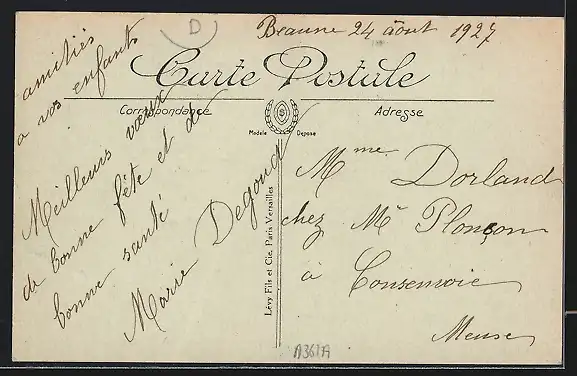 D
Beaune 24 août 1927
Carte Postale
Correspondance
Adresse
Modèle Déposé
amitiés
a vos enfants
Meilleurs vœux
de bonne fête et de
bonne santé
Marie Degoud
Lévy Fils et Cie, Paris Versailles
Mme Dorland
chez Mr Plonçon
à Consenvoie
Meuse
A361A